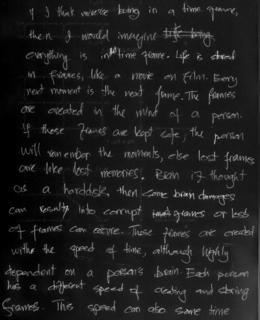 If I think universe being in a time frame,
then I would imagine life being
everything is in time frame. Life is stored
in frames, like a movie on film. Every
next moment is the next frame. The frames
are created in the mind of a person.
If those frames are kept safe, the person
will remember the moments, else lost frames
are like lost memories. Brain if thought
as a harddisk, then some brain damages
can results into corrupt frames or loss
of frames can occure. These frames are created
withe the speed of time, although highly
dependent on a persons brain. Each person
has a different speed of creating and storing
frames. This speed can also some time